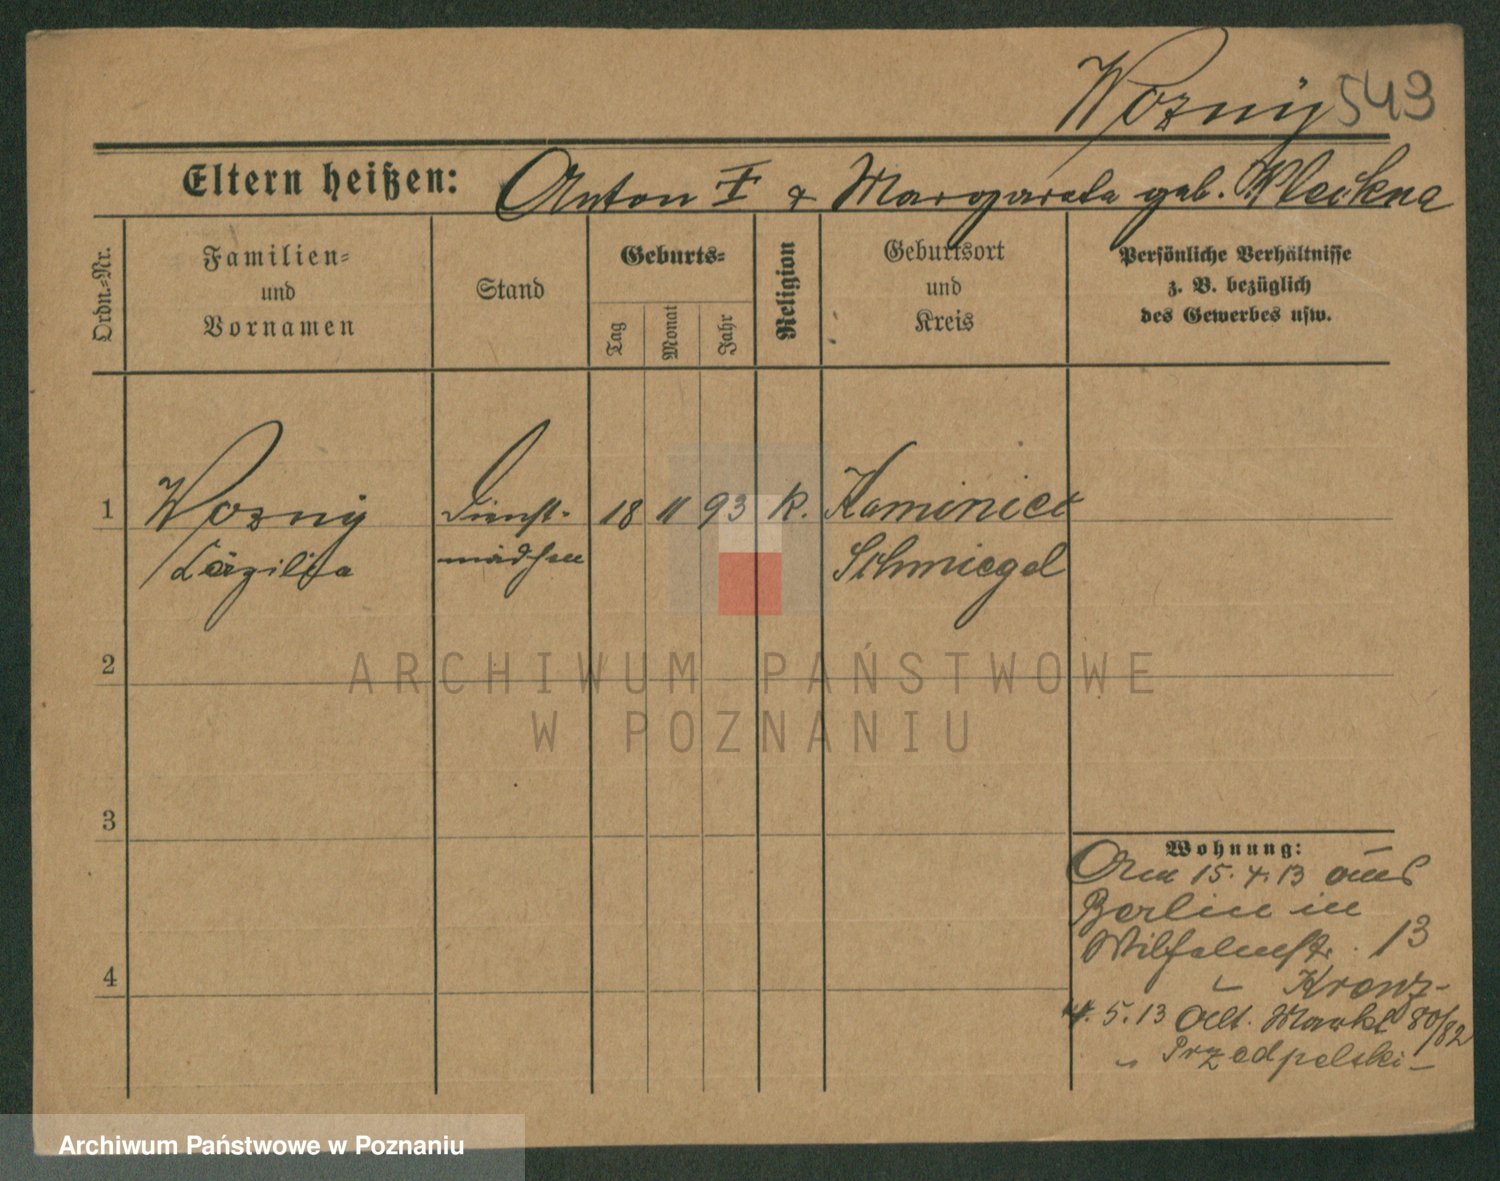 Wozny 543
Eltern heißen: Anton I & Margareta geb. Kleckna
Ordn.-Nr.
Familien-
und
Vornamen
Stand
Geburts-
Tag
Monat
Jahr
Religion
Geburtsort
und
Kreis
Persönliche Verhältnisse
z. B. bezüglich
des Gewerbes usw.
1 Wozny Dienst- 18 11 93 k. Kaminiec
Cäzilia mädchen Schmiegel
2
ARCHIWUM PAŃSTWOWE
W POZNANIU
3
Wohnung:
15. 4. 13 aus
Berlin in
Wilhelmstr. 13
4
" Kranz-
5. 13 Alt. Markt 80/82
" Przedpelski-
Archiwum Państwowe w Poznaniu